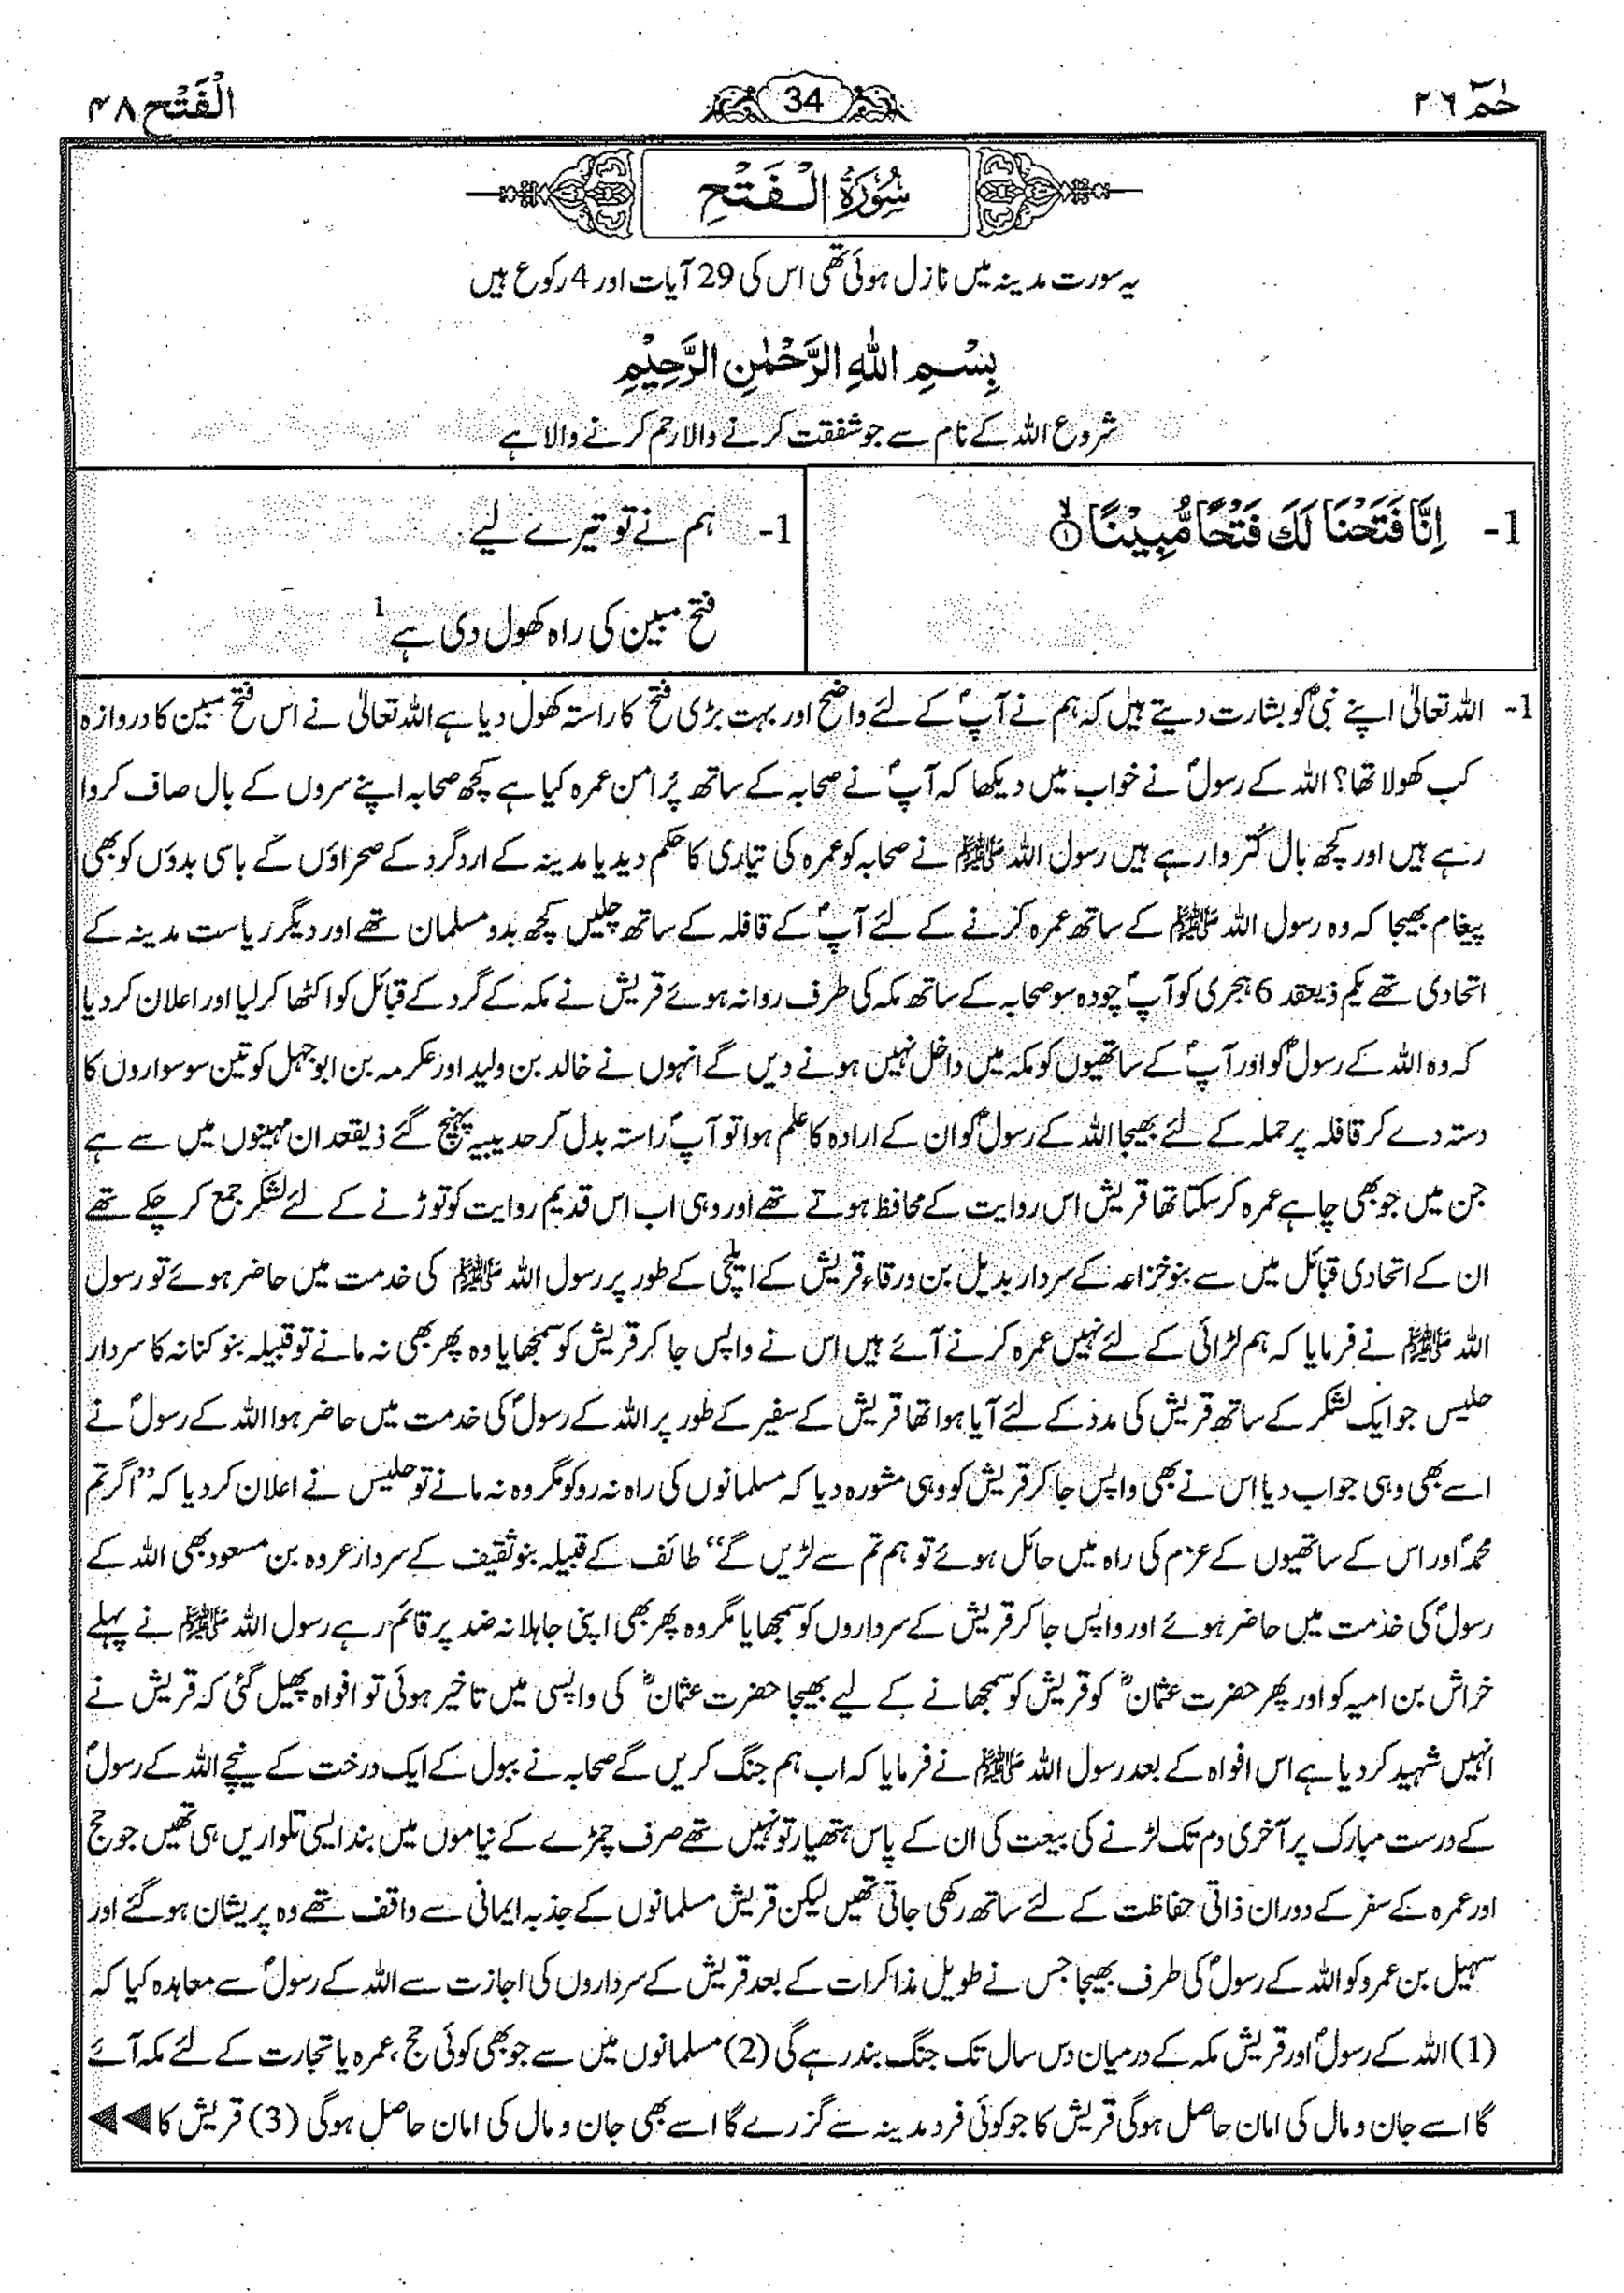 حٰمٓ ۲٦
34
الْفَتْح ۴۸
سُوْرَةُ الْفَتْحِ
یہ سورت مدینہ میں نازل ہوئی تھی اس کی 29 آیات اور 4 رکوع ہیں
بِسْمِ اللهِ الرَّحْمٰنِ الرَّحِيْمِ
شروع اللہ کے نام سے جو شفقت کرنے والا رحم کرنے والا ہے
1- اِنَّا فَتَحْنَا لَكَ فَتْحًا مُّبِيْنًا ۙ﴿۱﴾
1- ہم نے تو تیرے لیے
فتح مبین کی راہ کھول دی ہے 1
1- اللہ تعالیٰ اپنے نبیؐ کو بشارت دیتے ہیں کہ ہم نے آپؐ کے لئے واضح اور بہت بڑی فتح کا راستہ کھول دیا ہے اللہ تعالیٰ نے اس فتح مبین کا دروازہ
کب کھولا تھا؟ اللہ کے رسولؐ نے خواب میں دیکھا کہ آپؐ نے صحابہ کے ساتھ پُر امن عمرہ کیا ہے کچھ صحابہ اپنے سروں کے بال صاف کروا
رہے ہیں اور کچھ بال کُتر وا رہے ہیں رسول اللہ ﷺ نے صحابہ کو عمرہ کی تیاری کا حکم دیدیا مدینہ کے اردگرد کے صحراؤں کے باسی بدوؤں کو بھی
پیغام بھیجا کہ وہ رسول اللہ ﷺ کے ساتھ عمرہ کرنے کے لئے آپؐ کے قافلہ کے ساتھ چلیں کچھ بدو مسلمان تھے اور دیگر ریاست مدینہ کے
اتحادی تھے یکم ذیعقد 6 ہجری کو آپؐ چودہ سو صحابہ کے ساتھ مکہ کی طرف روانہ ہوئے قریش نے مکہ کے گرد کے قبائل کو اکٹھا کرلیا اور اعلان کردیا
کہ وہ اللہ کے رسولؐ کو اور آپؐ کے ساتھیوں کو مکہ میں داخل نہیں ہونے دیں گے انہوں نے خالد بن ولید اور عکرمہ بن ابوجہل کو تین سو سواروں کا
دستہ دے کر قافلہ پر حملہ کے لئے بھیجا اللہ کے رسولؐ کو ان کے ارادہ کا علم ہوا تو آپؐ راستہ بدل کر حدیبیہ پہنچ گئے ذیقعد ان مہینوں میں سے ہے
جن میں جو بھی چاہے عمرہ کر سکتا تھا قریش اس روایت کے محافظ ہوتے تھے اور وہی اب اس قدیم روایت کو توڑنے کے لئے لشکر جمع کر چکے تھے
ان کے اتحادی قبائل میں سے بنو خزاعہ کے سردار بدیل بن ورقاء قریش کے ایلچی کے طور پر رسول اللہ ﷺ کی خدمت میں حاضر ہوئے تو رسول
اللہ ﷺ نے فرمایا کہ ہم لڑائی کے لئے نہیں عمرہ کرنے آئے ہیں اس نے واپس جا کر قریش کو سمجھایا وہ پھر بھی نہ مانے تو قبیلہ بنو کنانہ کا سردار
حلیس جو ایک لشکر کے ساتھ قریش کی مدد کے لئے آیا ہوا تھا قریش کے سفیر کے طور پر اللہ کے رسولؐ کی خدمت میں حاضر ہوا اللہ کے رسولؐ نے
اسے بھی وہی جواب دیا اس نے بھی واپس جا کر قریش کو وہی مشورہ دیا کہ مسلمانوں کی راہ نہ روکو مگر وہ نہ مانے تو حلیس نے اعلان کر دیا کہ ’’اگر تم
محمدؐ اور اس کے ساتھیوں کے عزم کی راہ میں حائل ہوئے تو ہم تم سے لڑیں گے‘‘ طائف کے قبیلہ بنو ثقیف کے سردار عروہ بن مسعود بھی اللہ کے
رسولؐ کی خدمت میں حاضر ہوئے اور واپس جا کر قریش کے سرداروں کو سمجھایا مگر وہ پھر بھی اپنی جاہلانہ ضد پر قائم رہے رسول اللہ ﷺ نے پہلے
خراش بن امیہ کو اور پھر حضرت عثمانؓ کو قریش کو سمجھانے کے لیے بھیجا حضرت عثمانؓ کی واپسی میں تاخیر ہوئی تو افواہ پھیل گئی کہ قریش نے
انہیں شہید کر دیا ہے اس افواہ کے بعد رسول اللہ ﷺ نے فرمایا کہ اب ہم جنگ کریں گے صحابہ نے ببول کے ایک درخت کے نیچے اللہ کے رسولؐ
کے درست مبارک پر آخری دم تک لڑنے کی بیعت کی ان کے پاس ہتھیار تو نہیں تھے صرف چمڑے کے نیاموں میں بند ایسی تلواریں ہی تھیں جو حج
اور عمرہ کے سفر کے دوران ذاتی حفاظت کے لئے ساتھ رکھی جاتی تھیں لیکن قریش مسلمانوں کے جذبہ ایمانی سے واقف تھے وہ پریشان ہو گئے اور
سہیل بن عمرو کو اللہ کے رسولؐ کی طرف بھیجا جس نے طویل مذاکرات کے بعد قریش کے سرداروں کی اجازت سے اللہ کے رسولؐ سے معاہدہ کیا کہ
(1) اللہ کے رسولؐ اور قریش مکہ کے درمیان دس سال تک جنگ بند رہے گی (2) مسلمانوں میں سے جو بھی کوئی حج، عمرہ یا تجارت کے لئے مکہ آئے
گا اسے جان و مال کی امان حاصل ہوگی قریش کا جو کوئی فرد مدینہ سے گزرے گا اسے بھی جان و مال کی امان حاصل ہوگی (3) قریش کا ◀◀